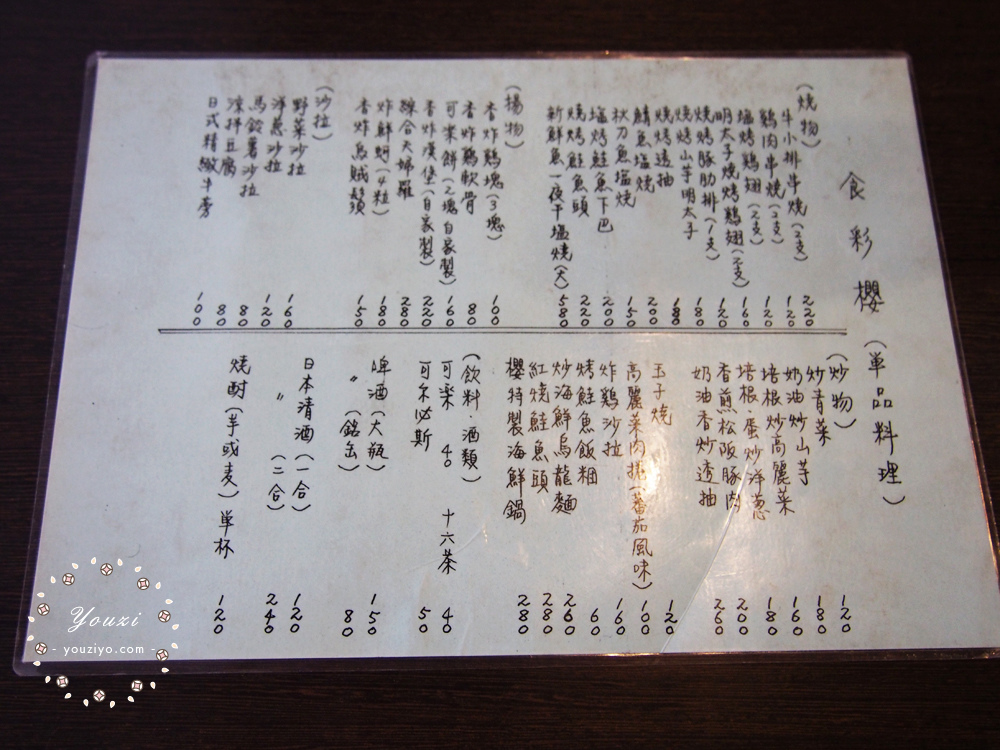 食彩櫻
(単品料理)
(燒物)
牛小排串燒(2支) 220
鷄肉串燒(2支) 120
塩烤鷄翅(2支) 120
明太子燒烤鷄翅(2支) 160
燒烤豚肋排(1支) 120
燒烤山芋明太子 180
燒烤透抽 180
鯖魚塩燒 200
秋刀魚塩燒 150
塩烤鮭魚下巴 200
燒烤鮭魚頭 220
新鮮魚一夜干塩燒(大) 580
(揚物)
香炸鷄塊(3塊) 100
香炸鷄軟骨 80
可樂餅(2塊自家製) 160
香炸漢堡(自家製) 220
綜合天婦羅 280
炸鮮蚵(4粒) 180
香炸烏賊鬚 150
(沙拉)
野菜沙拉 160
洋蔥沙拉 120
馬鈴薯沙拉 80
涼拌豆腐 80
日式精緻牛蒡 100
(炒物)
炒青菜 120
奶油炒山芋 180
培根炒高麗菜 160
培根・蛋炒洋蔥 180
香煎松阪豚肉 200
奶油香炒透抽 260
玉子燒 120
高麗菜肉捲(蕃茄風味) 100
炸鷄沙拉 160
烤鮭魚飯糰 60
炒海鮮烏龍麵 260
紅燒鮭魚頭 280
櫻特製海鮮鍋 280
(飲料酒類)
可楽 40 十六茶 40
可尔必斯 50
啤酒(大瓶) 150
〃(銘缶) 80
日本清酒(一合) 120
〃(二合) 240
燒酎(芋或麦)単杯 120
Youzi
- youziyo.com -